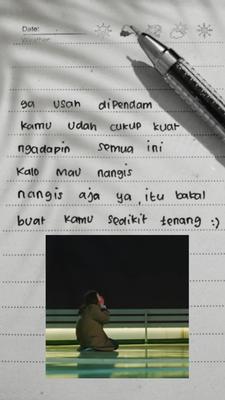 Date:
Weather:
ga usah dipendam
kamu udah cukup kuat
ngadapin semua ini
kalo mau nangis
nangis aja ya, itu bakal
buat kamu sedikit tenang :)